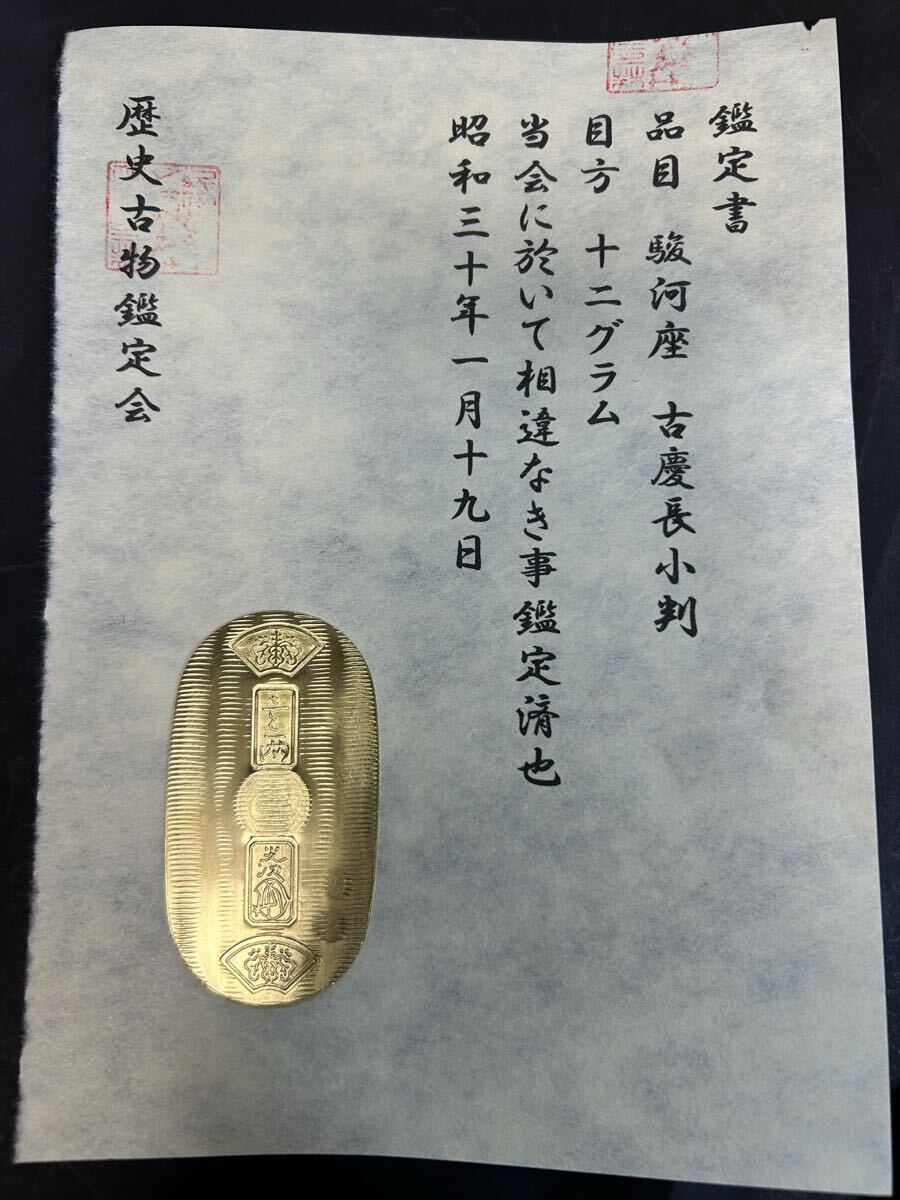 鑑定書
品目 駿河座 古慶長小判
目方 十二グラム
当会に於いて相違なき事鑑定済也
昭和三十年一月十九日
歴史古物鑑定会